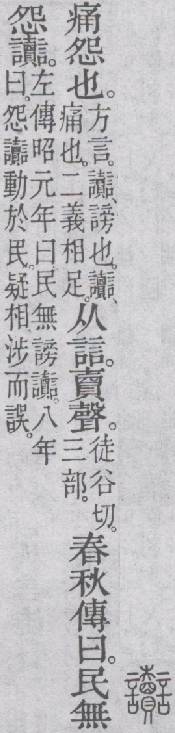 讟
痛怨也。方言。讟、謗也。讟、痛也。二義相足。从誩。賣聲。徒谷切。三部。春秋傳曰。民無
怨讟。左傳昭元年曰。民無謗讟。八年曰。怨讟動於民。疑相涉而誤。